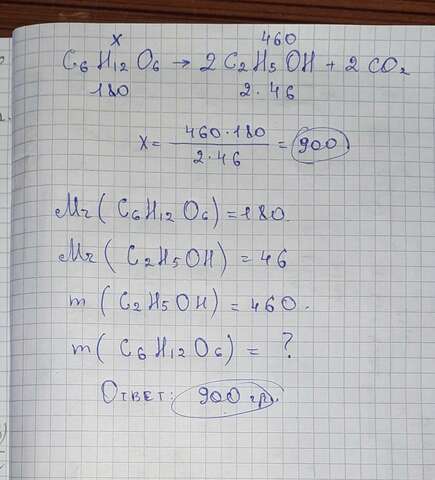 x 460
C₆H₁₂O₆ → 2C₂H₅OH + 2CO₂
180 2·46
x = 460·180 / 2·46 = 900
Mr (C₆H₁₂O₆) = 180
Mr (C₂H₅OH) = 46
m (C₂H₅OH) = 460.
m (C₆H₁₂O₆) = ?
Ответ: 900 гр.